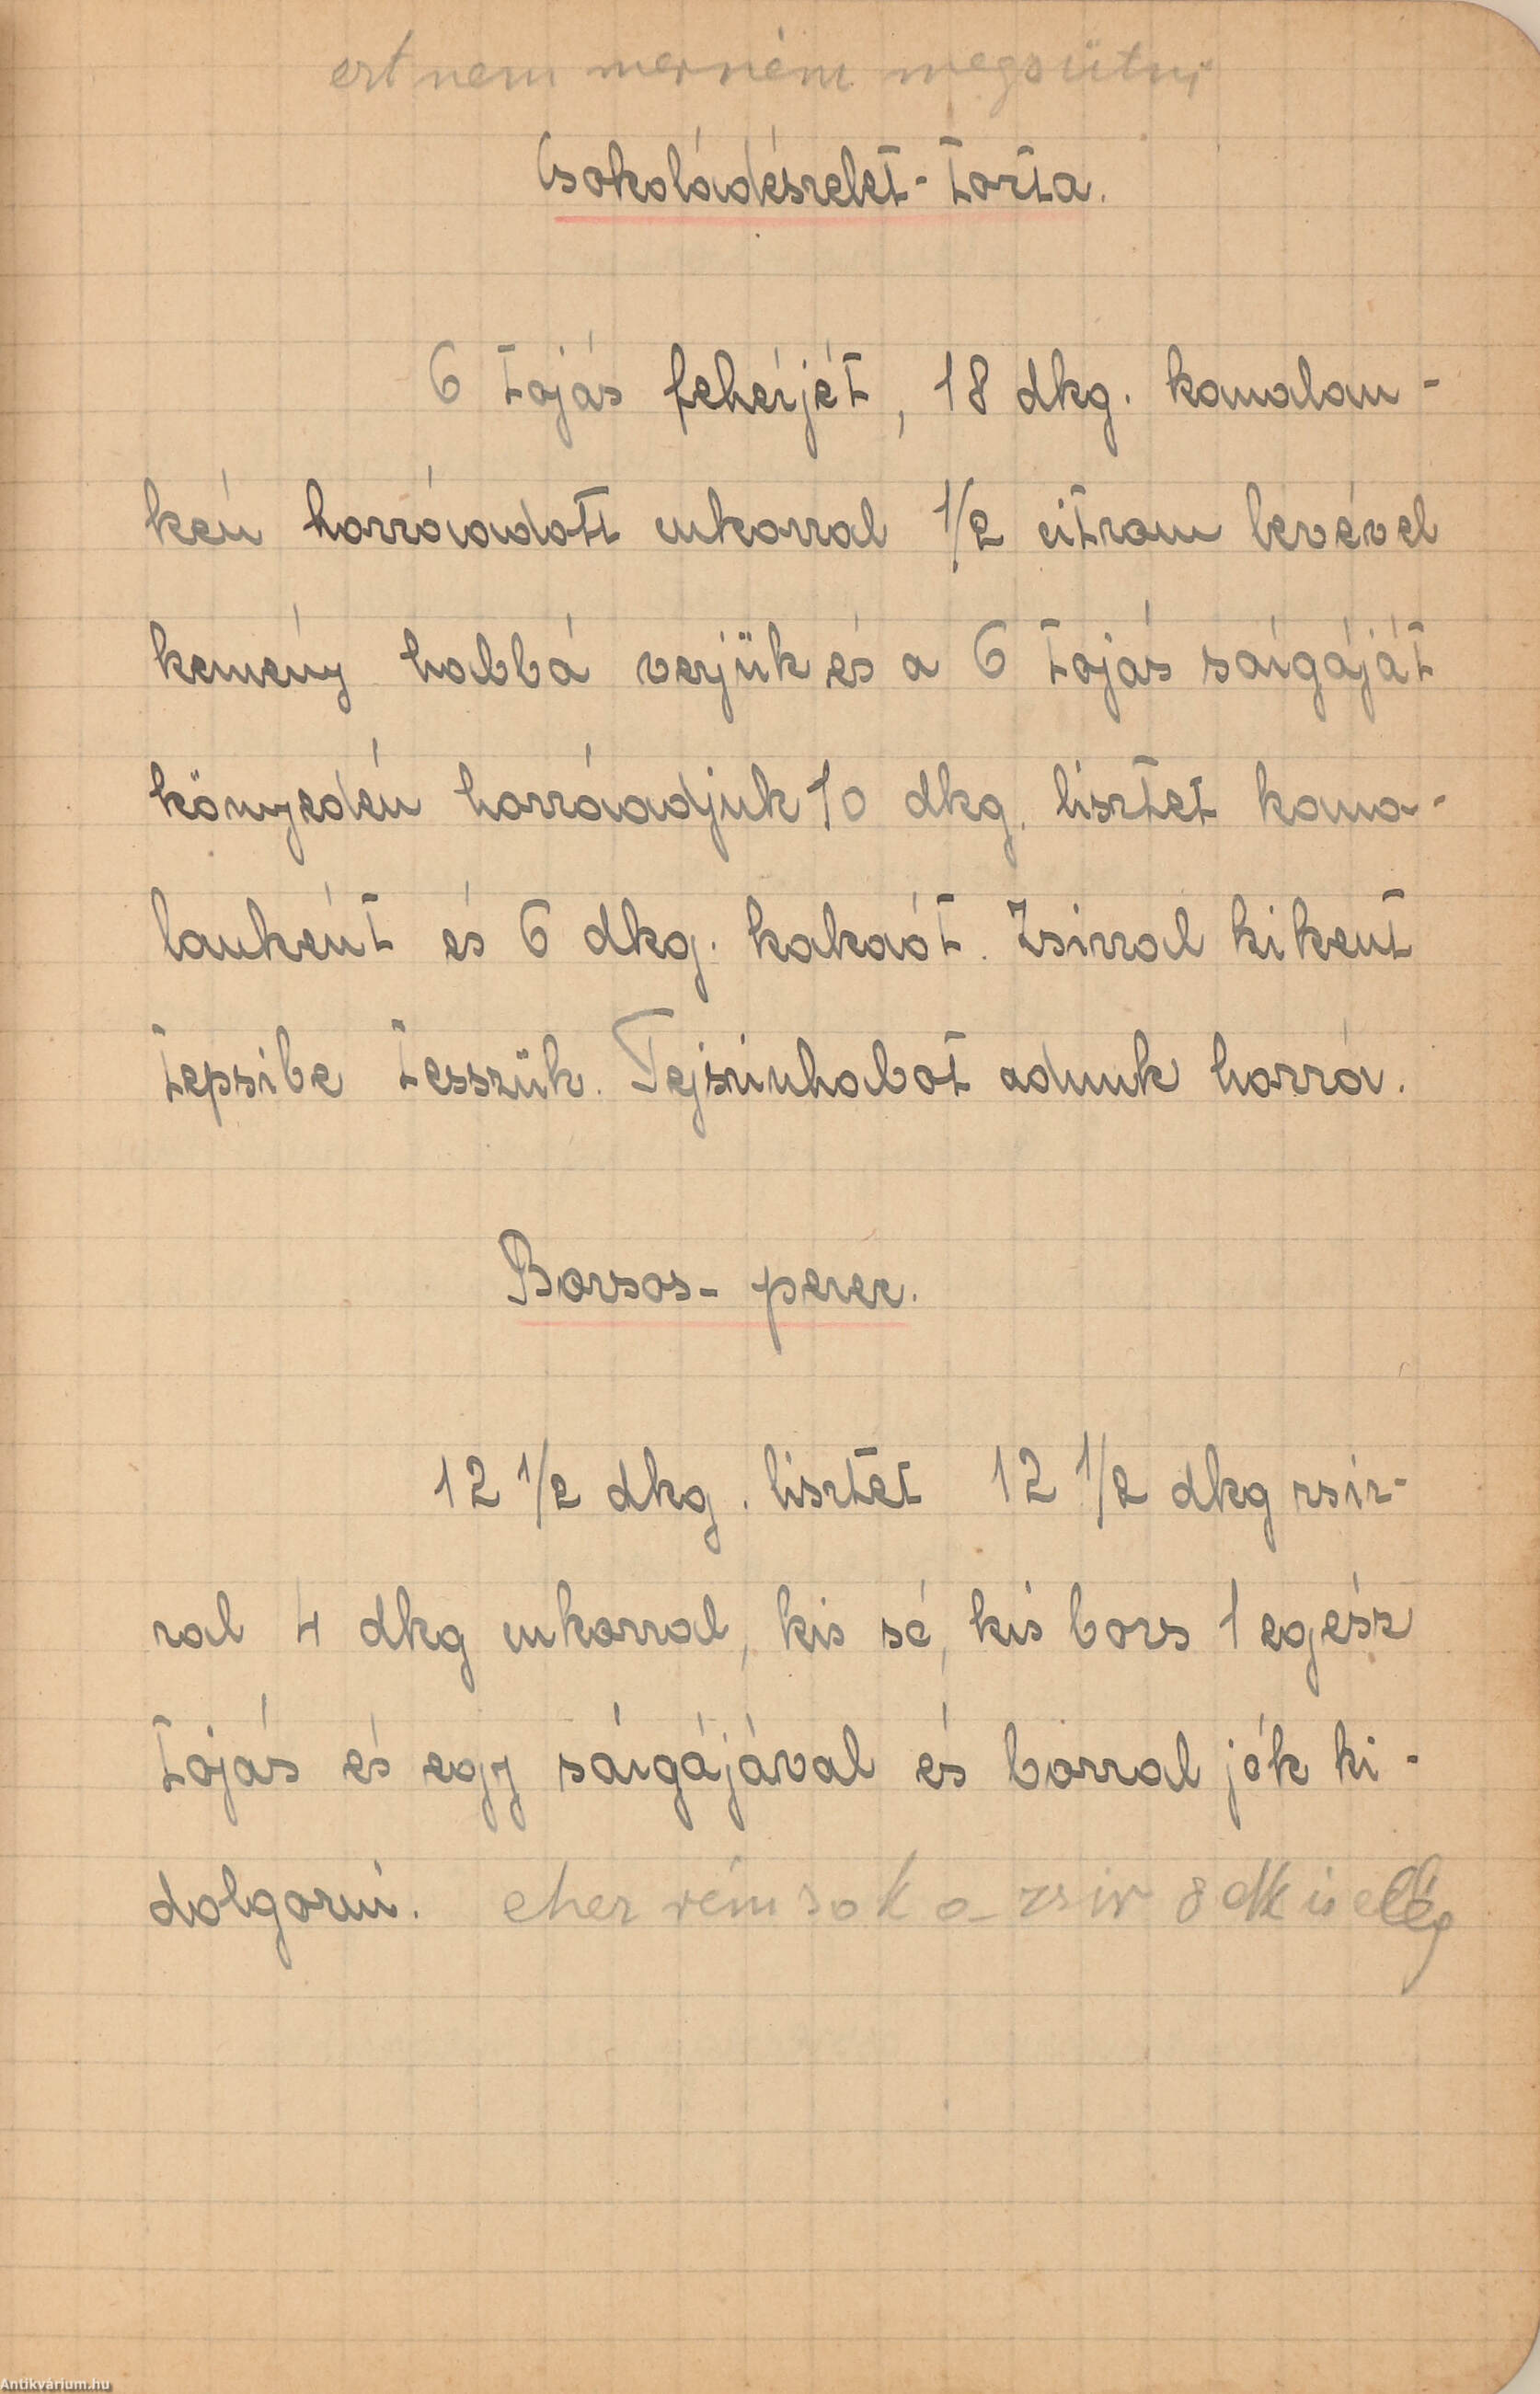 ezt nem merném megsütni
Csokoládészelet-torta.
6 tojás fehérjét, 18 dkg. kanalan-
kén hozzáadott cukorral 1/2 citrom levével
kemény habbá verjük és a 6 tojás sárgáját
könyedén hozzáadjuk 10 dkg. lisztet kana-
lanként és 6 dkg. kakaót. Zsirral kikent
tepsibe tesszük. Tejszinhabot adunk hozzá.
Borsos- perec.
12 1/2 dkg. lisztet 12 1/2 dkg zsir-
ral 4 dkg cukorral, kis só, kis bors 1 egész
tojás és egy sárgájával és borral jók ki-
dolgozni. ehez rém sok a zsir 8 dk is elég
Antikvárium.hu